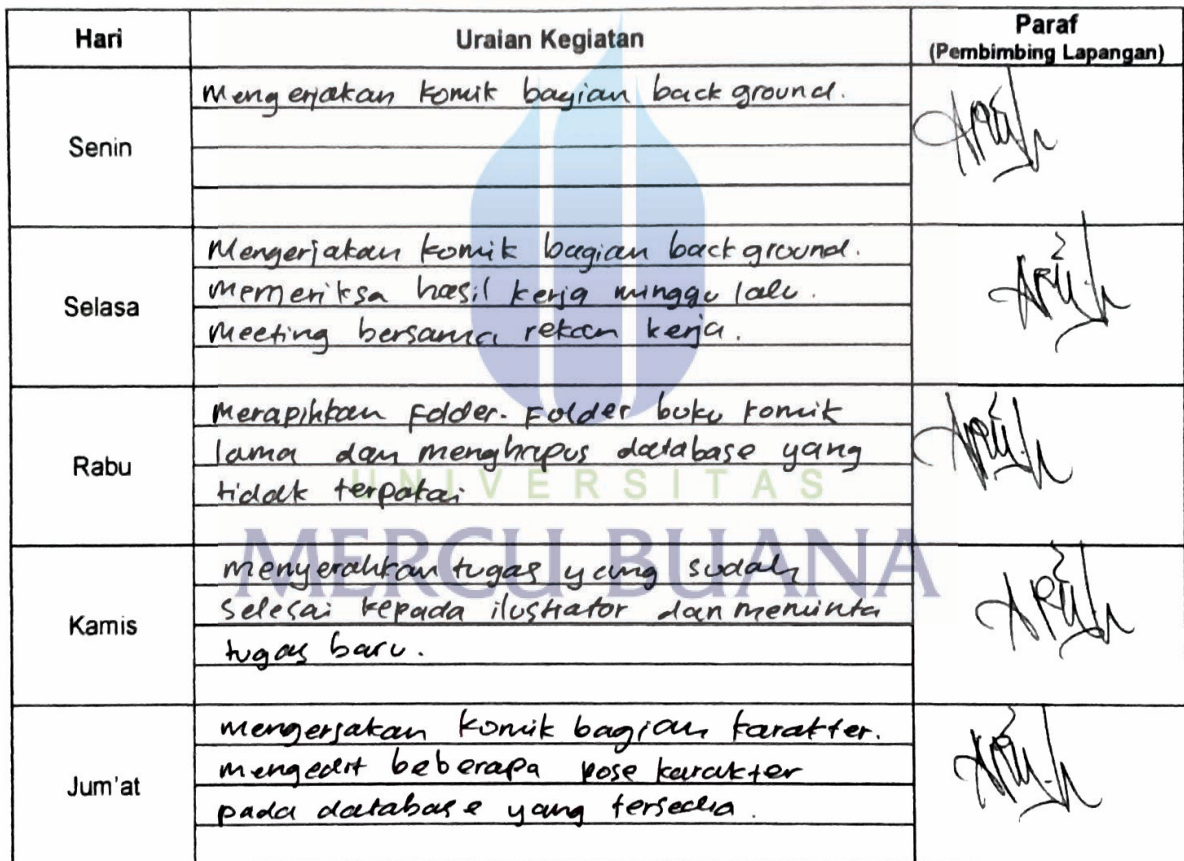 Hari Uraian Kegiatan Paraf
(Pembimbing Lapangan)
Senin
Mengerjakan komik bagian background.
Selasa
Mengerjakan komik bagian background.
memeriksa hasil kerja minggu lalu.
Meeting bersama rekan kerja.
Rabu
merapihkan Folder-Folder buku komik
lama dan menghapus database yang
tidak terpakai
UNIVERSITAS
MERCU BUANA
Kamis
menyerahkan tugas yang sudah
selesai kepada ilustrator dan meminta
tugas baru.
Jum'at
mengerjakan komik bagian karakter.
mengedit beberapa pose karakter
pada database yang tersedia.